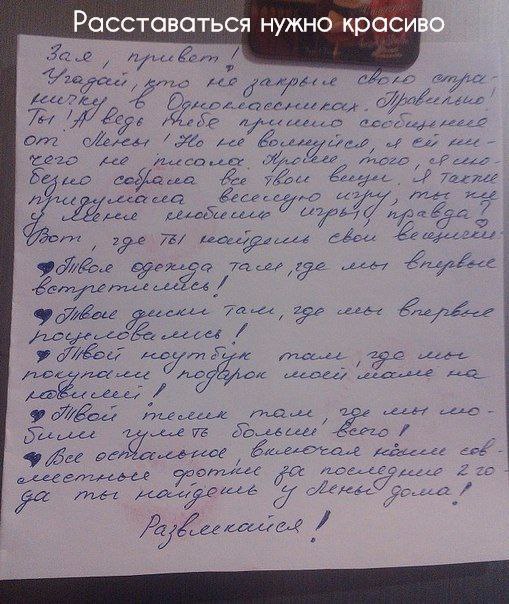 Расставаться нужно красиво
Зая, привет!
Угадай, кто не закрыл свою стра-
ничку в Одноклассниках. Правильно!
Ты! А ведь тебе пришло сообщение
от Лены! Но не волнуйся, я ей ни-
чего не писала. Кроме того, я лю-
безно собрала все твои вещи. Я также
придумала веселую игру, ты же
у меня любишь игры, правда?
Вот, где ты найдешь свои вещички:
Твоя одежда там, где мы впервые
встретились!
Твои диски там, где мы впервые
поцеловались!
Твой ноутбук там, где мы
покупали подарок моей маме на
юбилей!
Твой телик там, где мы лю-
били гулять больше всего!
Все остальное, включая наши сов-
местные фотки за последние 2 го-
да ты найдешь у Лены дома!
Развлекайся!